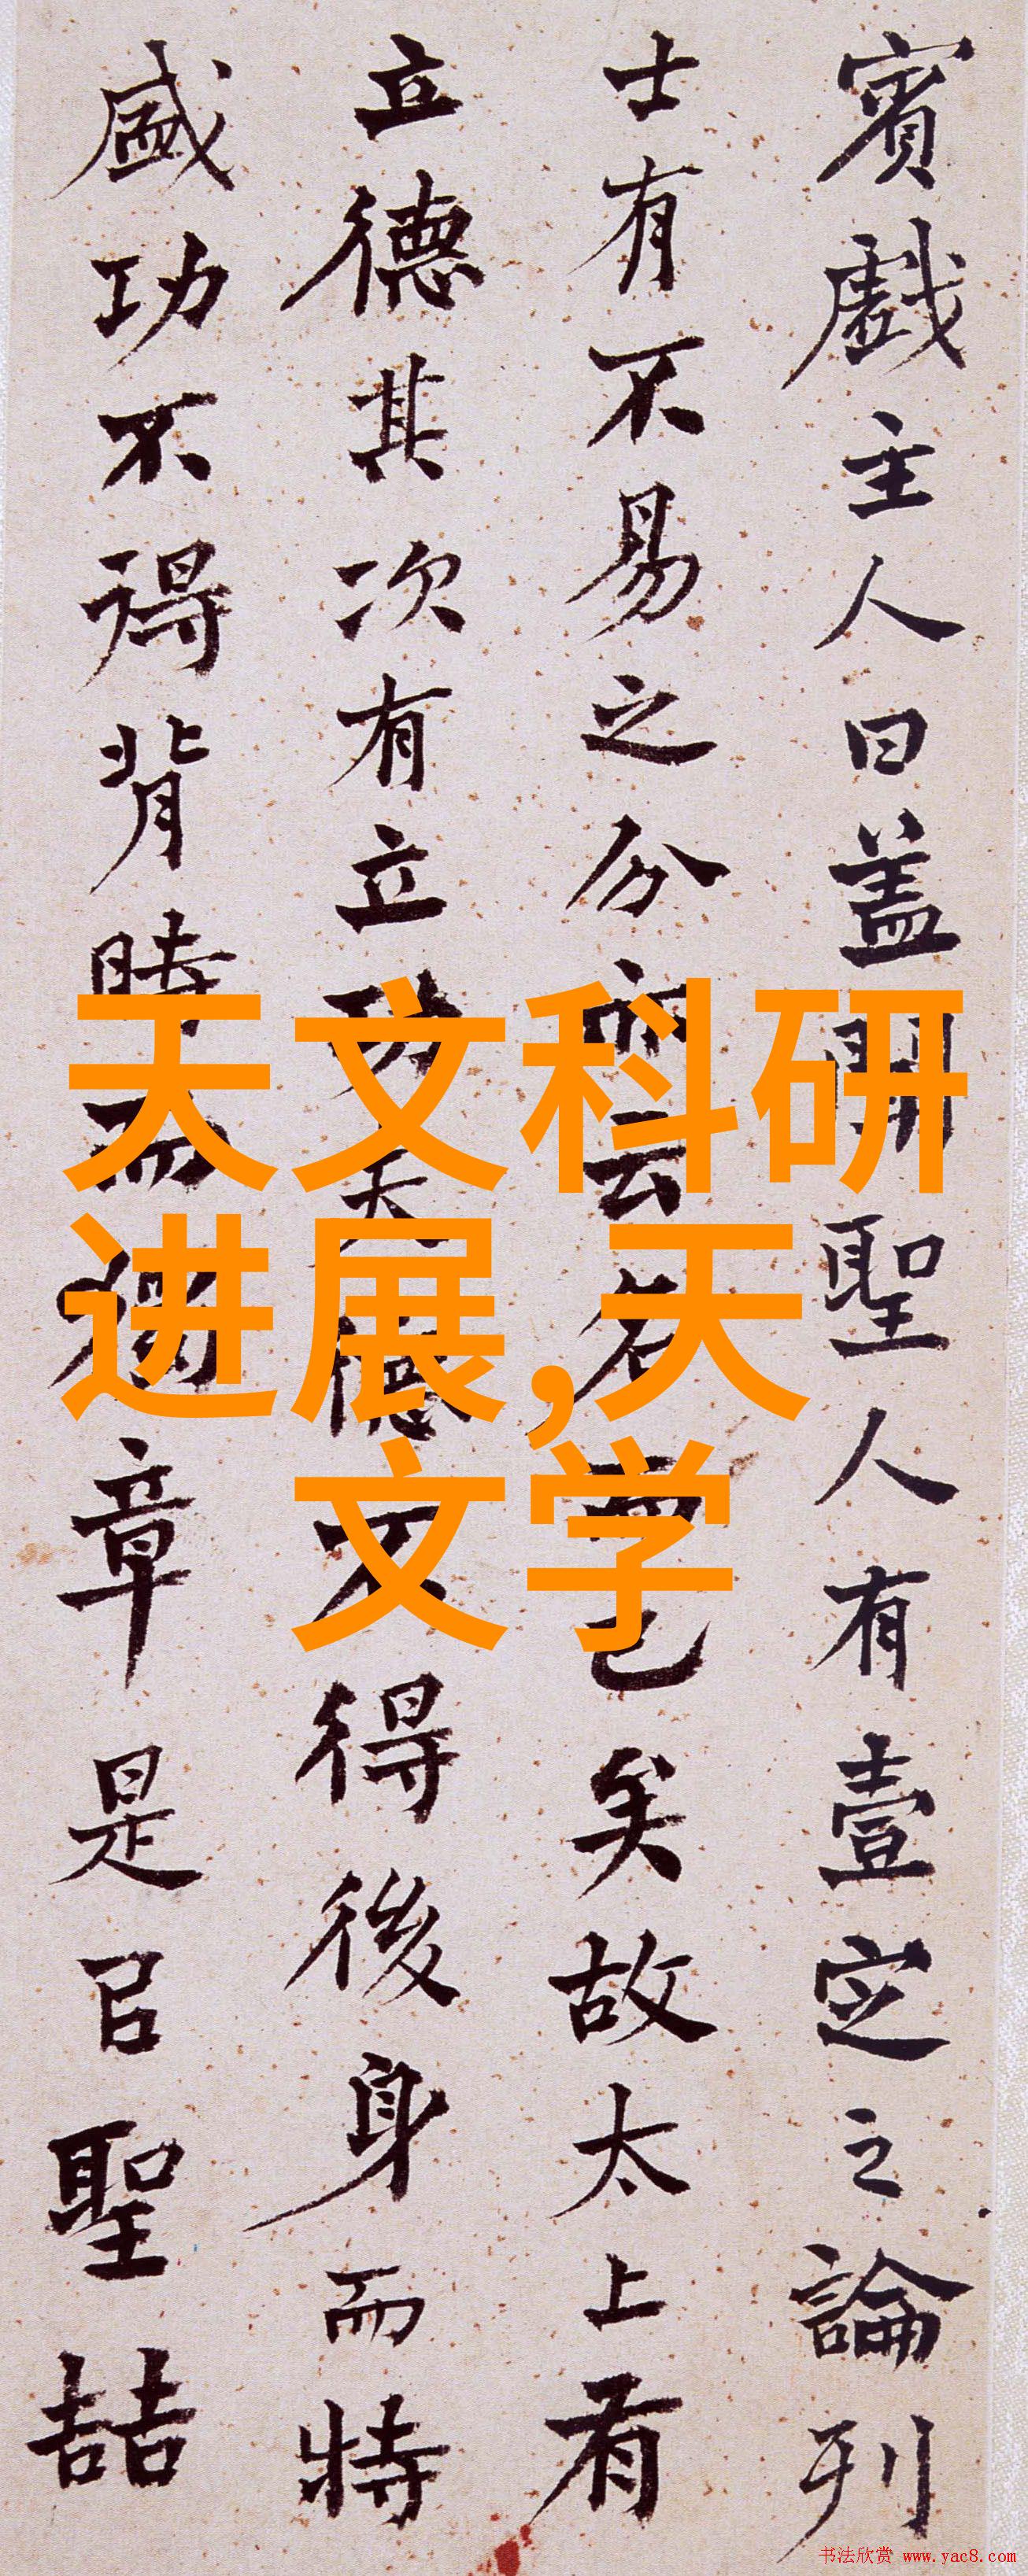 賓戲主人曰蓋聞聖人有壹定之論列
士有不易之分亦云名而已矣故太上有
立德其次有立功夫德不得後身而特
盛功不得背時而獨章是㠯聖喆
天文科研
进展,天
文学
书法欣赏 www.yac8.com